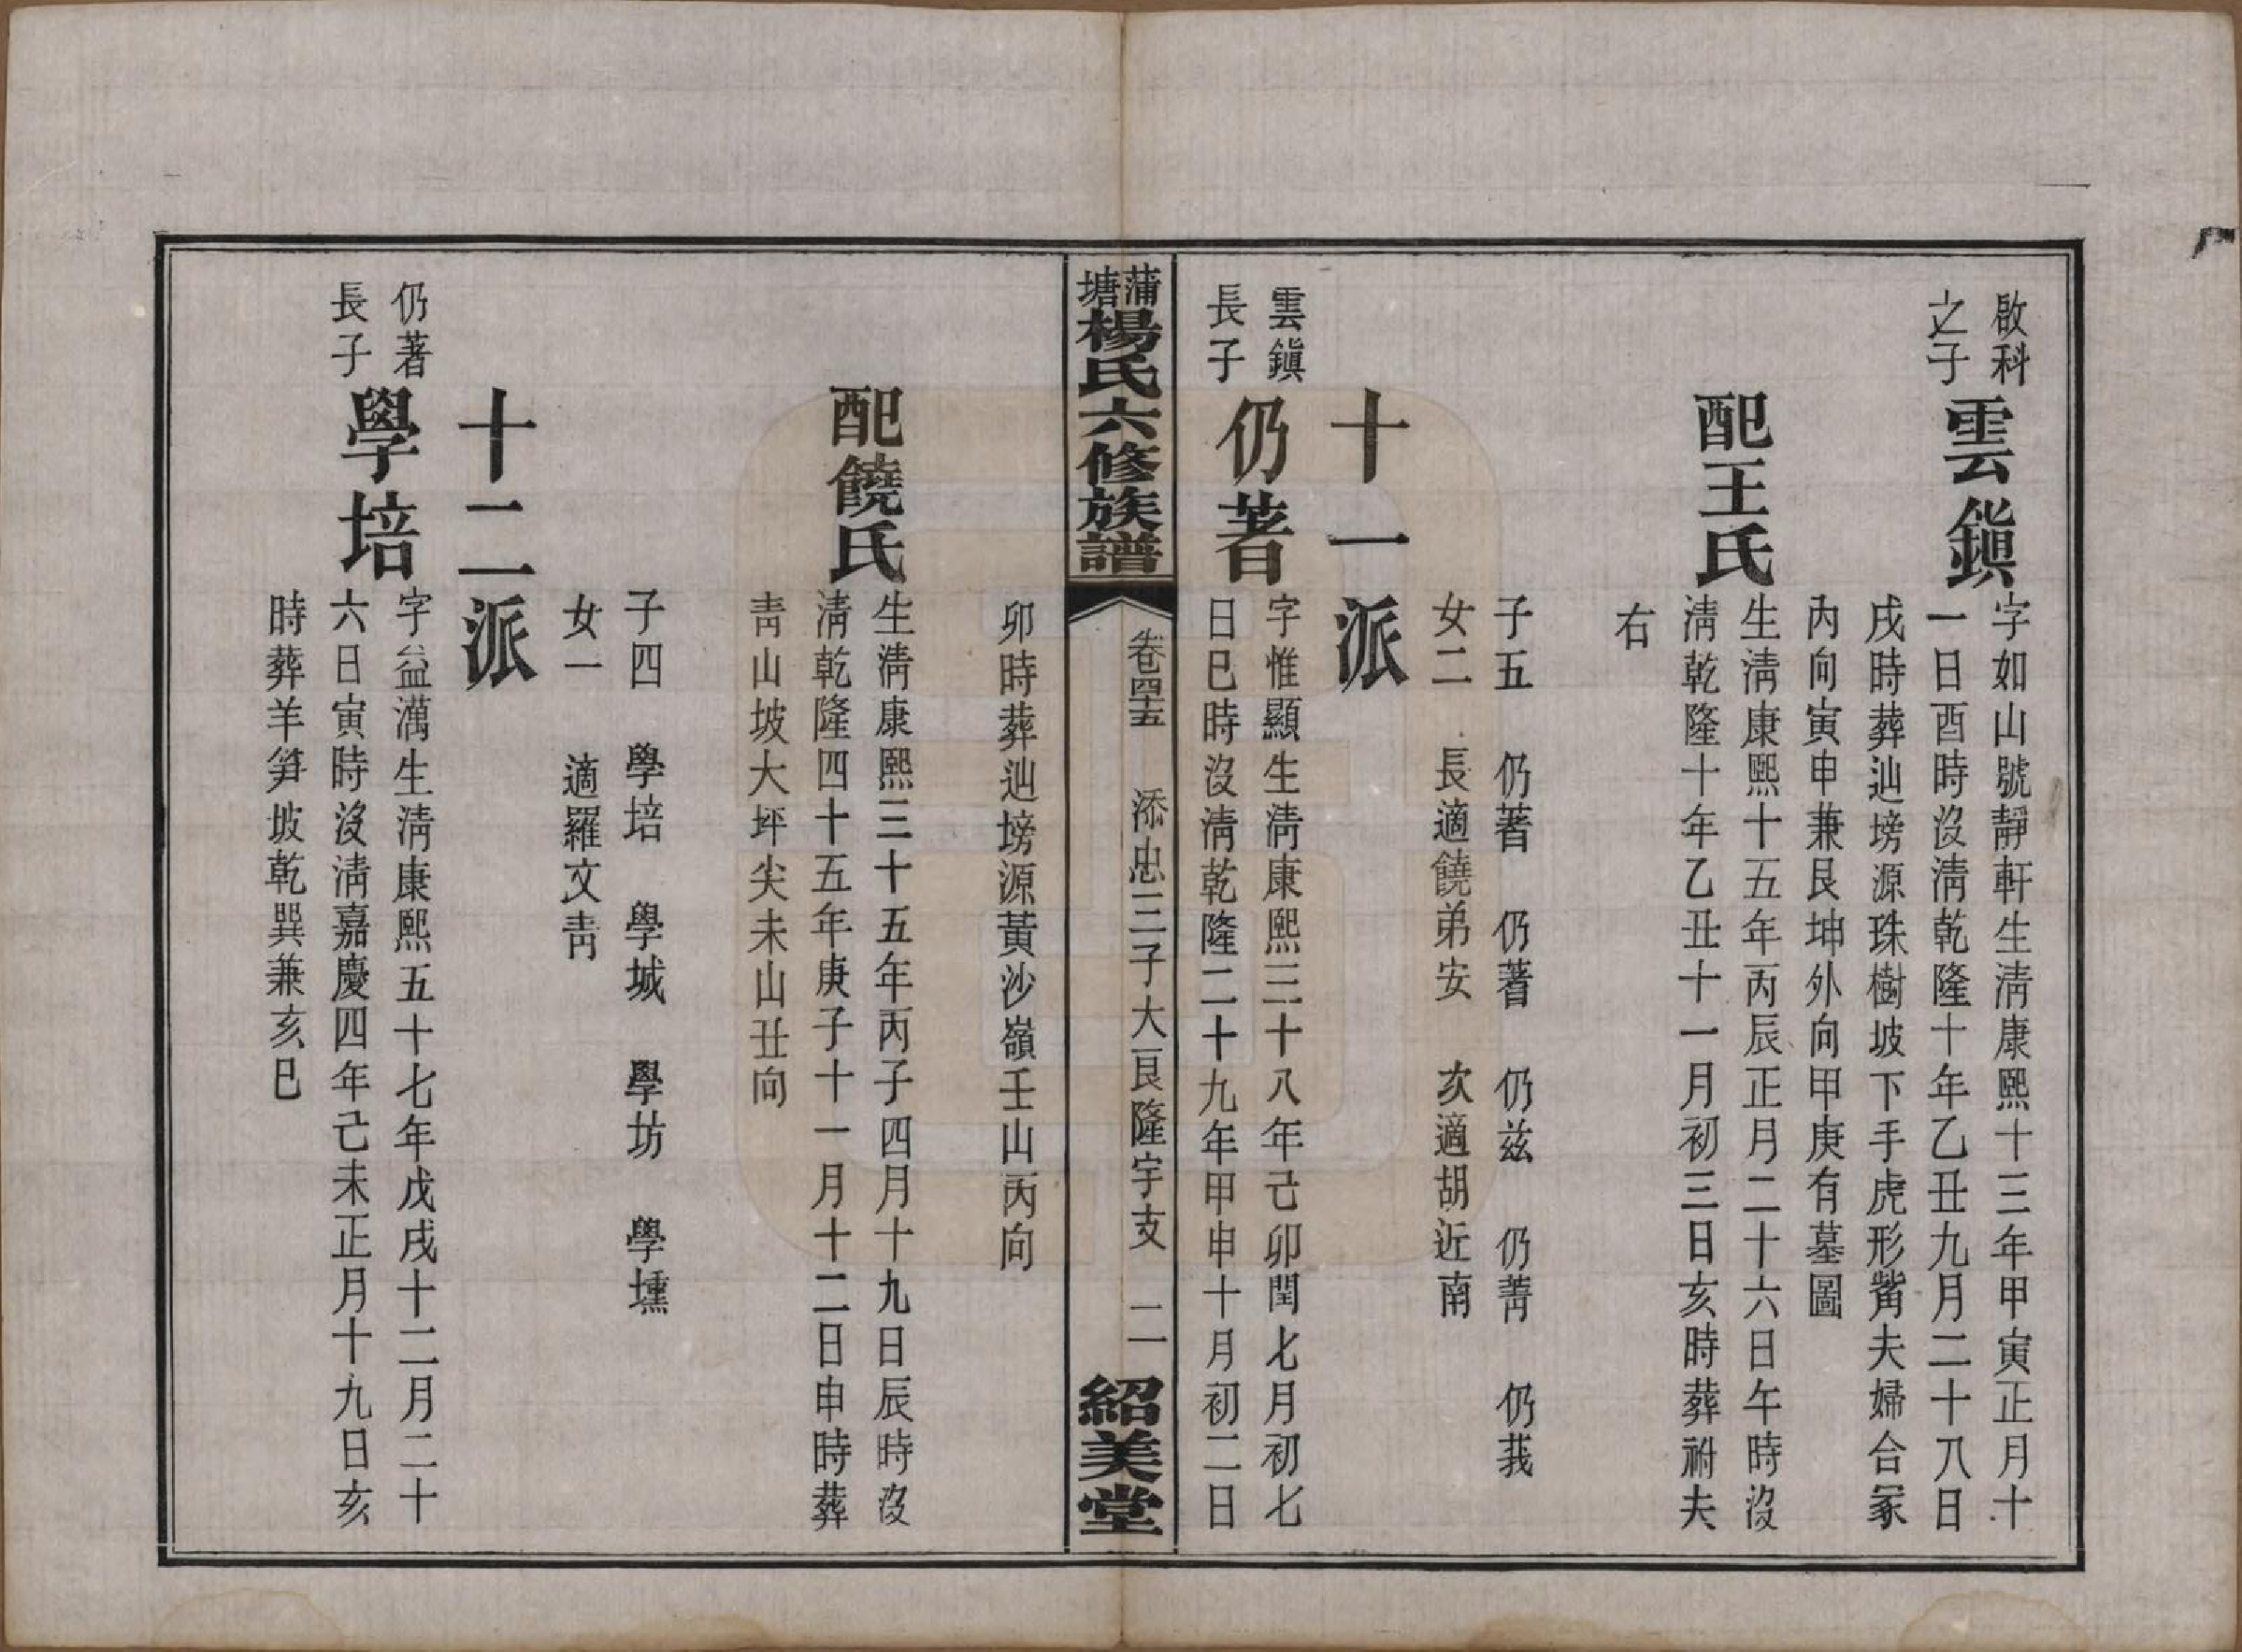 啟科
之子
雲鎭
字如山號靜軒生淸康熙十三年甲寅正月十
一日酉時沒淸乾隆十年乙丑九月二十八日
戌時葬辿塝源珠樹坡下手虎形觜夫婦合冢
內向寅申兼艮坤外向甲庚有墓圖
配王氏
生淸康熙十五年丙辰正月二十六日午時沒
淸乾隆十年乙丑十一月初三日亥時葬祔夫
右
子五 仍著 仍蓍 仍茲 仍菁 仍莪
女二 長適饒弟安 次適胡近南
十一派
雲鎭
長子
仍著
字惟顯生淸康熙三十八年己卯閏七月初七
日巳時沒淸乾隆二十九年甲申十月初二日
蒲塘楊氏六修族譜
卷四十五 添忠三子大艮隆宇支 二 紹美堂
卯時葬辿塝源黃沙嶺壬山丙向
配饒氏
生淸康熙三十五年丙子四月十九日辰時沒
淸乾隆四十五年庚子十一月十二日申時葬
靑山坡大坪尖未山丑向
子四 學培 學城 學坊 學壎
女一 適羅文靑
十二派
仍著
長子
學培
字益澫生淸康熙五十七年戊戌十二月二十
六日寅時沒淸嘉慶四年己未正月十九日亥
時葬羊筭坡乾巽兼亥巳